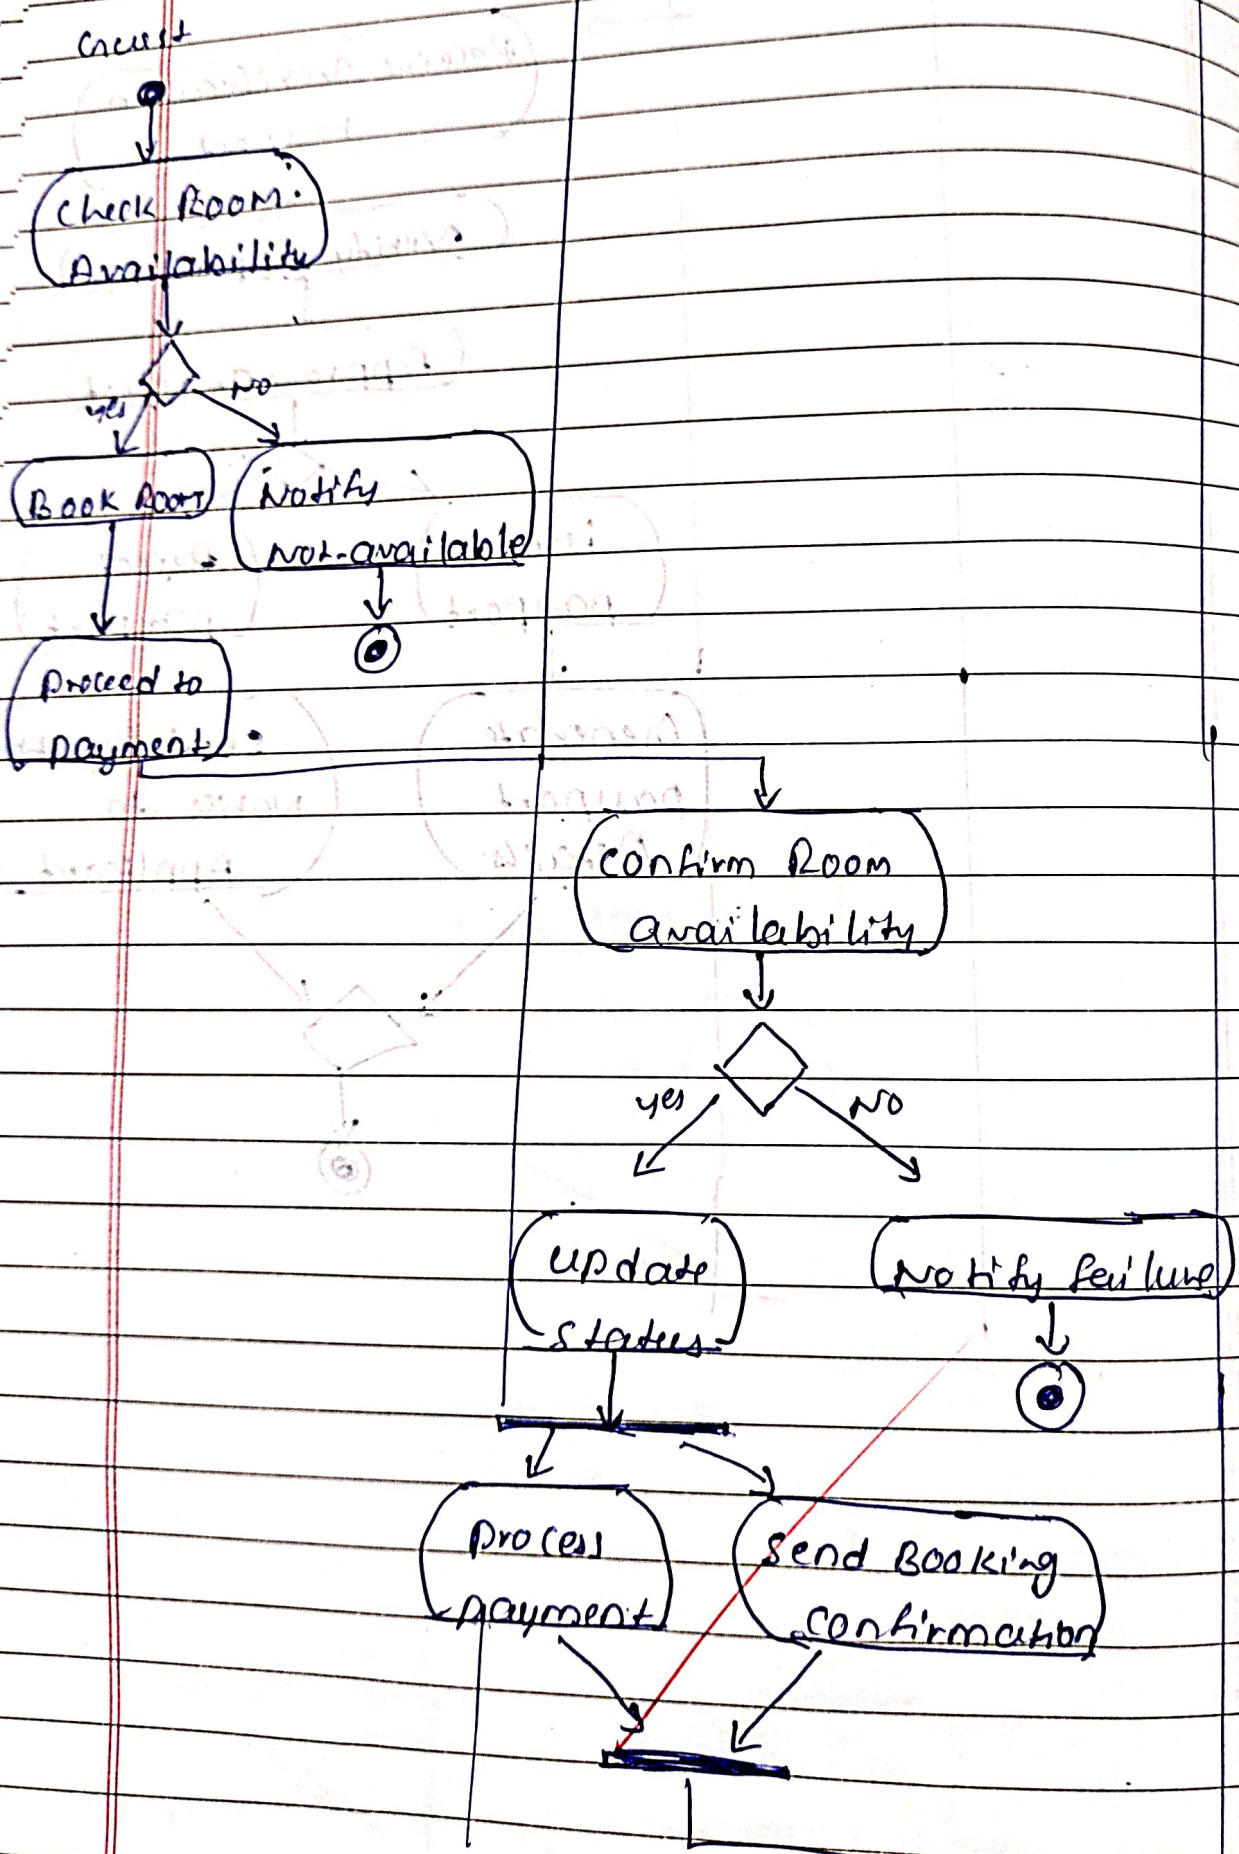 Guest
Check Room
Availability
yes
NO
Book Room
Notify
Not-available
Proceed to
payment
Confirm Room
availability
yes
NO
update
status
Notify failure
process
payment
Send Booking
confirmation